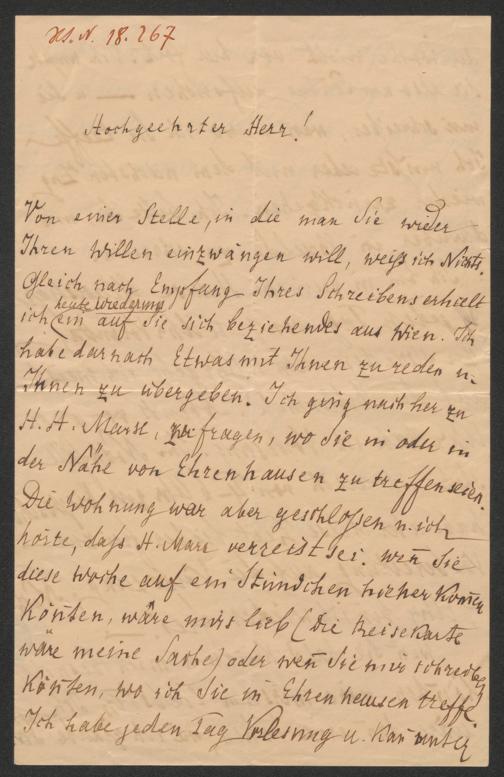 HS. N. 18.267
Hochgeehrter Herr!
Von einer Stelle, in die man Sie wider
Ihren Willen einzwängen will, weiß ich Nichts.
Gleich nach Empfang Ihres Schreibens erhielt
heute wiederum
ich ein auf Sie sich beziehendes aus Wien. Ich
habe darnach Etwas mit Ihnen zu reden u.
Ihnen zu übergeben. Ich ging nachher zu
H. H. zu fragen, wo Sie in oder in
der Nähe von Ehrenhausen zu treffen seien.
Die Wohnung war aber geschlossen u. ich
hörte, daß H. verreist sei. Wen̄ Sie
diese Woche auf ein Stündchen hieher kom̄en
kön̄ten, wäre mirs lieb (Die Reisekarte
wäre meine Sache) oder wen̄ Sie mir schreiben
kön̄ten, wo ich Sie in Ehrenhausen treffe.
Ich habe jeden Tag Vorlesung u. kan̄ unter